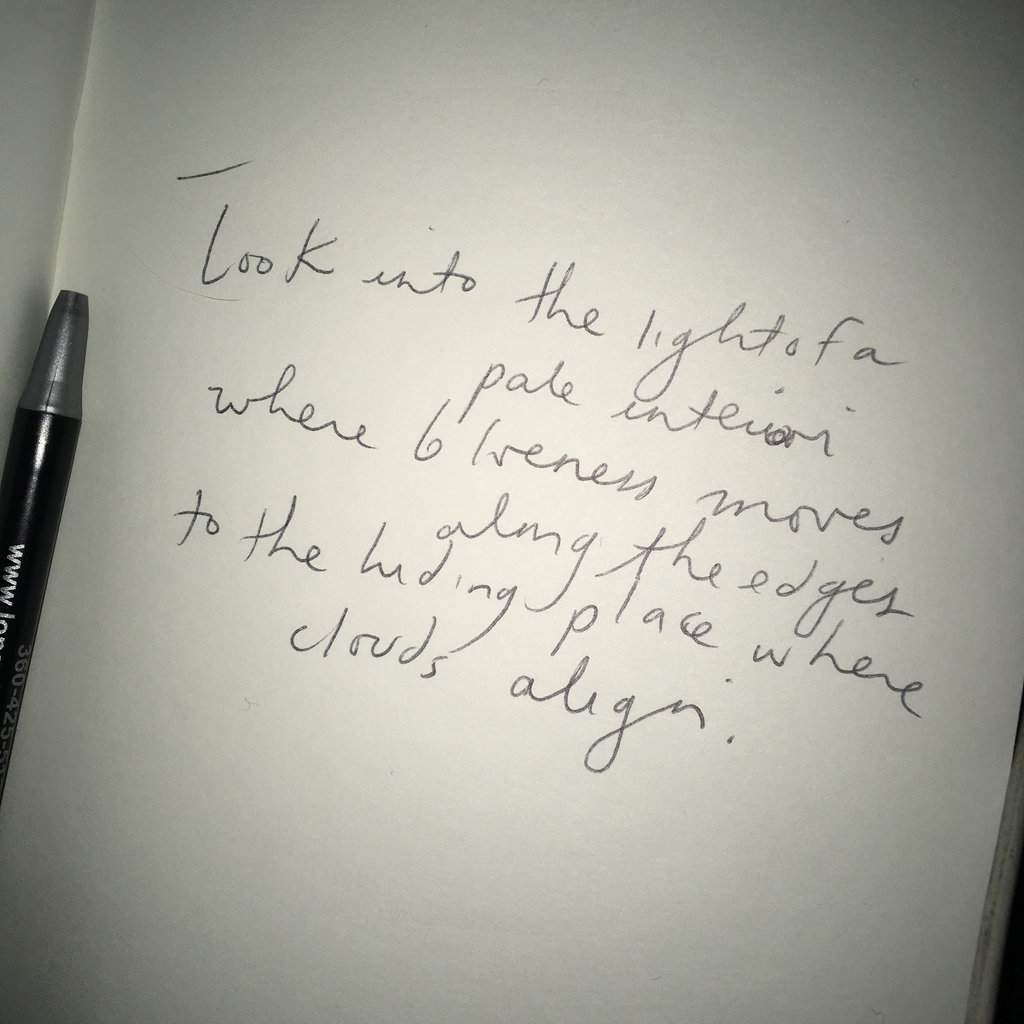 Look into the light of a
pale interior
where blueness moves
along the edges
to the hiding place where
clouds align.
www.lon
360-425-53